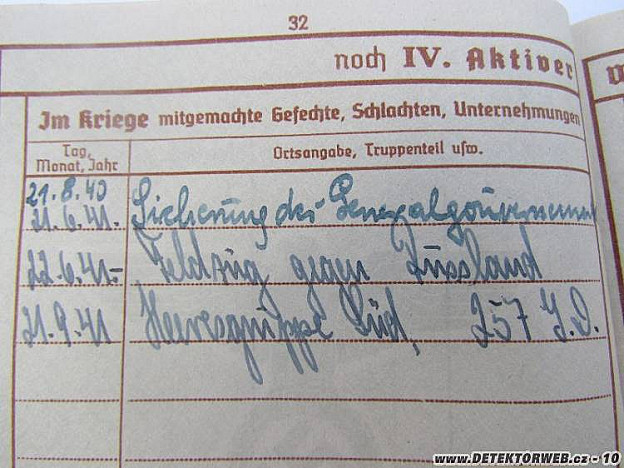 32
noch IV. Aktiver
Im Kriege mitgemachte Gefechte, Schlachten, Unternehmungen
Tag, Monat, Jahr
Ortsangabe, Truppenteil usw.
21.8.40
21.6.41. Sicherung des Generalgouvernements
22.6.41- Feldzug gegen Russland
21.9.41 Heeresgruppe Süd, 257 I.D.
www.DETEKTORWEB.cz - 10